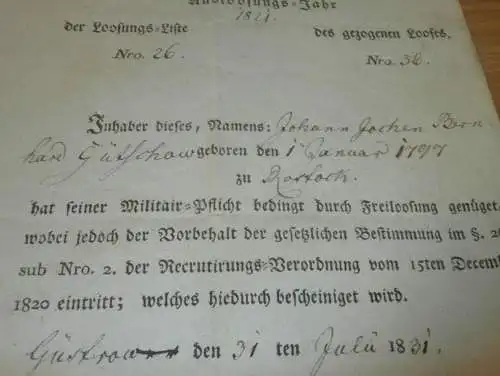 Ausloosungs-Jahr
1821.
der Loosungs-Liste des gezogenen Looses,
Nro. 26. Nro. 36.
Inhaber dieses, Namens: Johann Jochen Bern
hard Gütschow geboren den 1 Januar 1797
zu Rostock.
hat seiner Militair-Pflicht bedingt durch Freiloosung genüget,
wobei jedoch der Vorbehalt der gesetzlichen Bestimmung im §. 2
sub Nro. 2. der Recrutirungs-Verordnung vom 15ten Decemb
1820 eintritt; welches hiedurch bescheiniget wird.
Güstrow den 31 ten Julii 1831.